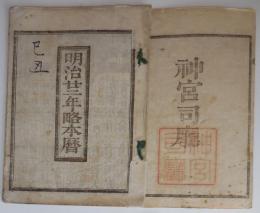 神宮司廳
明治廿二年略本暦
己丑